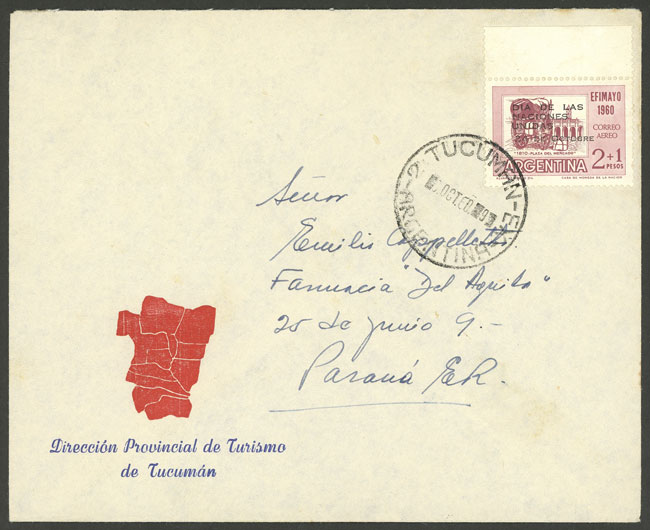 EFIMAYO
1960
CORREO
AEREO
DIA DE LAS
NACIONES
UNIDAS
24 DE OCTUBRE
"1810-PLAZA DEL MERCADO"
ARGENTINA 2+1
PESOS
CASA DE MONEDA DE LA NACION
2-TUCUMAN-E
ARGENTINA
OCT.
Señor
Emilio Cappelletti
Farmacia "Del Aguila"
25 de Junio 9.-
Paraná E.R.
Dirección Provincial de Turismo
de Tucumán